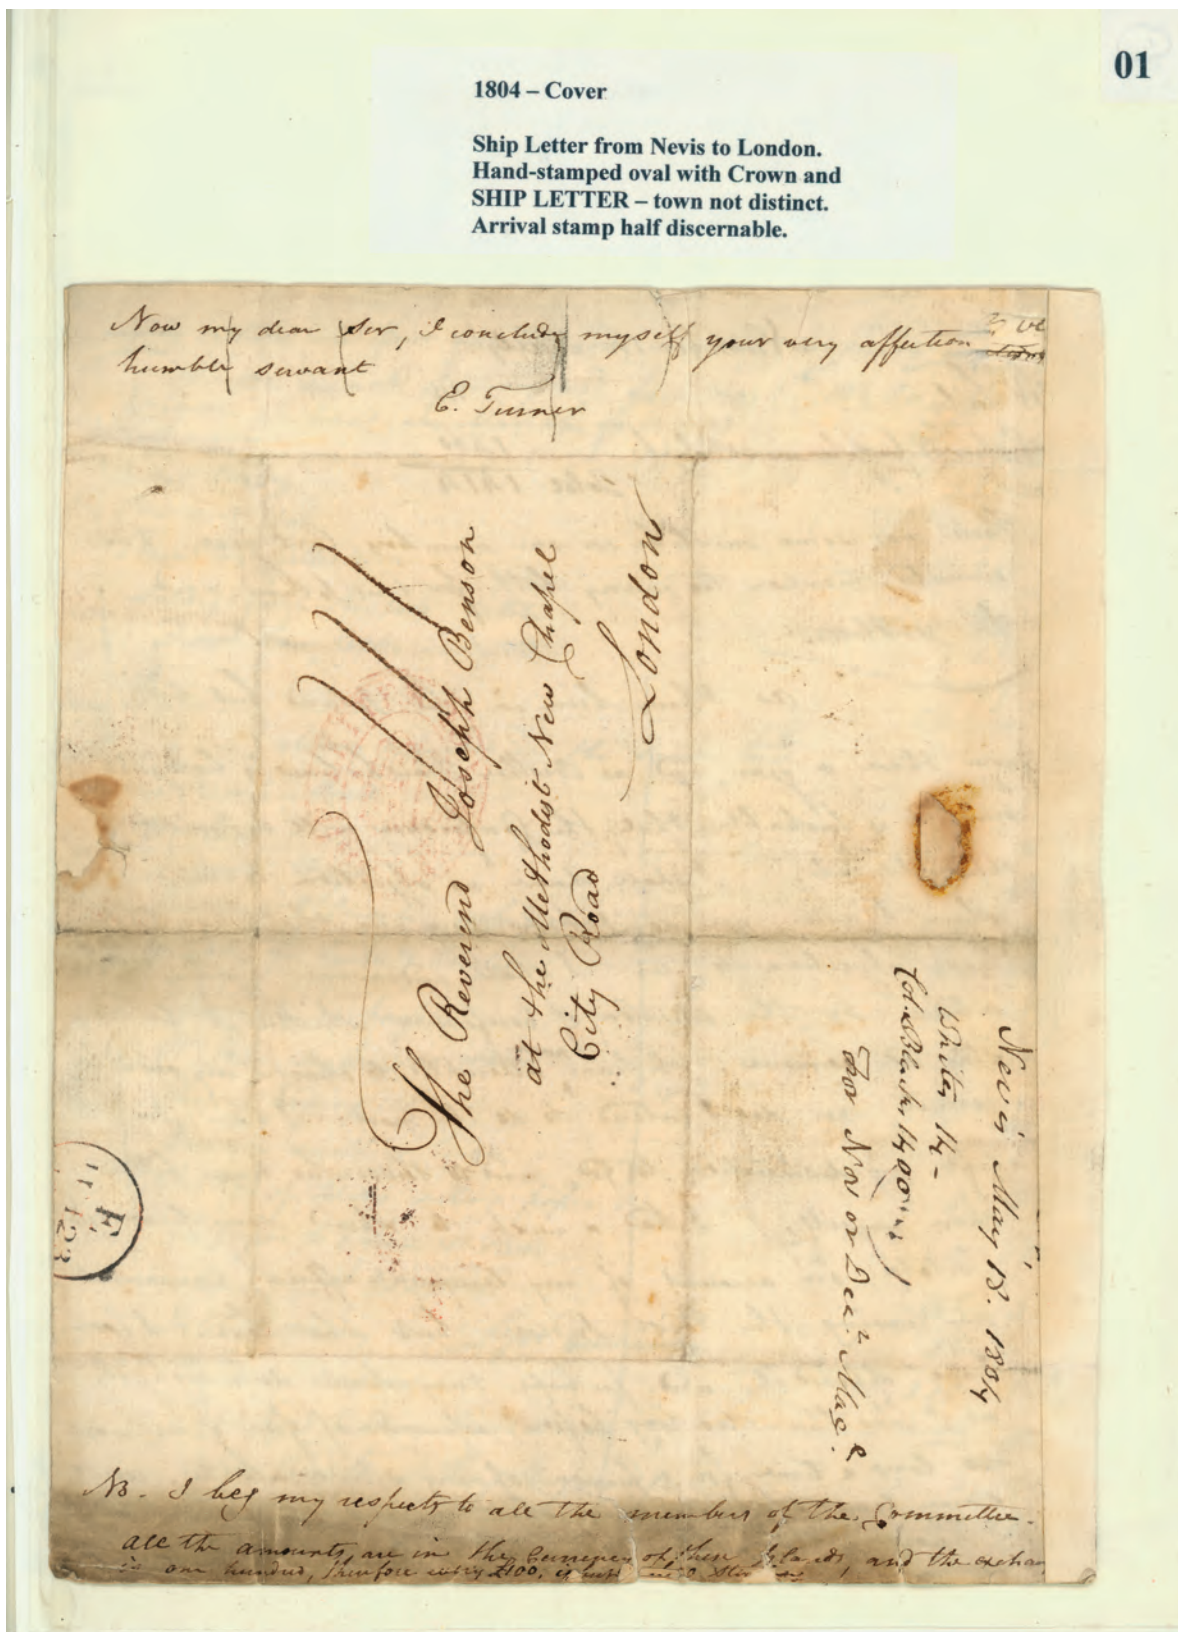 01
1804 – Cover
Ship Letter from Nevis to London.
Hand-stamped oval with Crown and
SHIP LETTER – town not distinct.
Arrival stamp half discernable.
Now my dear Sir, I conclude myself your very affection
humble servant
E. Turner
The Reverend Joseph Benson
at the Methodist New Chapel
City Road
London
Nevis May 13. 1804
Whites 14 -
Col. & Blacks 1400
For Nov or Decr. Mage.
F
123
NB. I beg my respects to all the members of the Committee.
all the amounts are in the Currency of these Islands, and the exchan
is one hundred, therefore every £100,